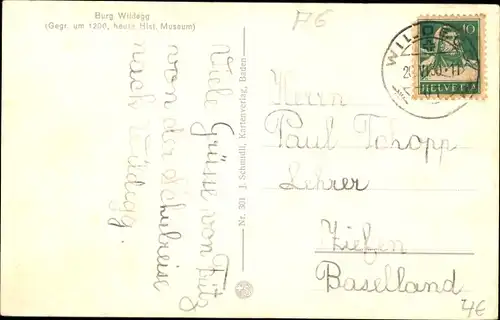 Burg Wildegg
(Gegr. um 1200, heute Hist. Museum)
P6
Viele Grüsse von Fritz
von der Schulreise
nach Wildegg.
Nr. 301 J. Schmidli, Kartenverlag, Baden
10
HELVETIA
Herrn
Paul Tschopp
Lehrer
Ziefen
Baselland
4E